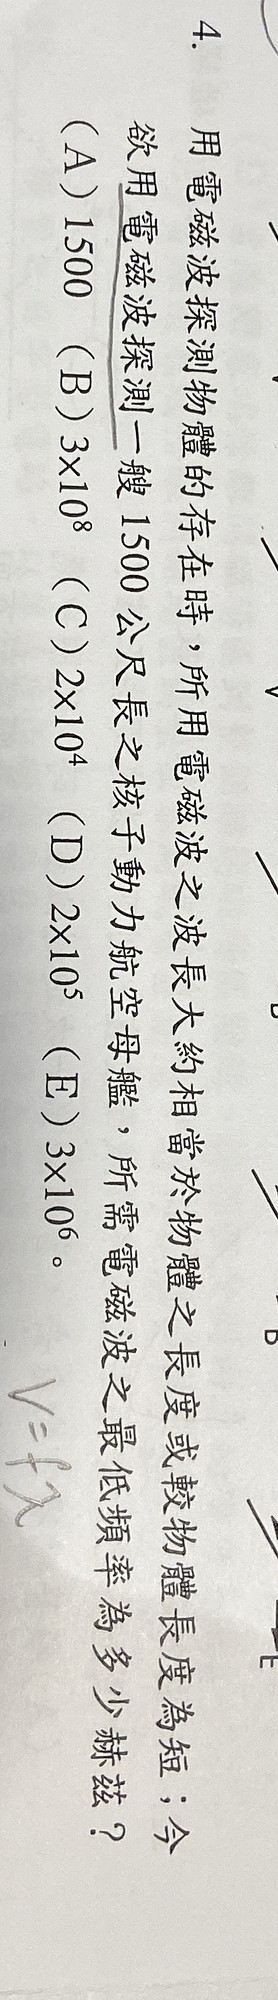 4. 用電磁波探測物體的存在時，所用電磁波之波長大約相當於物體之長度或較物體長度為短；今
欲用電磁波探測一艘 1500 公尺長之核子動力航空母艦，所需電磁波之最低頻率為多少赫茲？
(A) 1500 (B) 3x10⁸ (C) 2x10⁴ (D) 2x10⁵ (E) 3x10⁶。
V=fλ